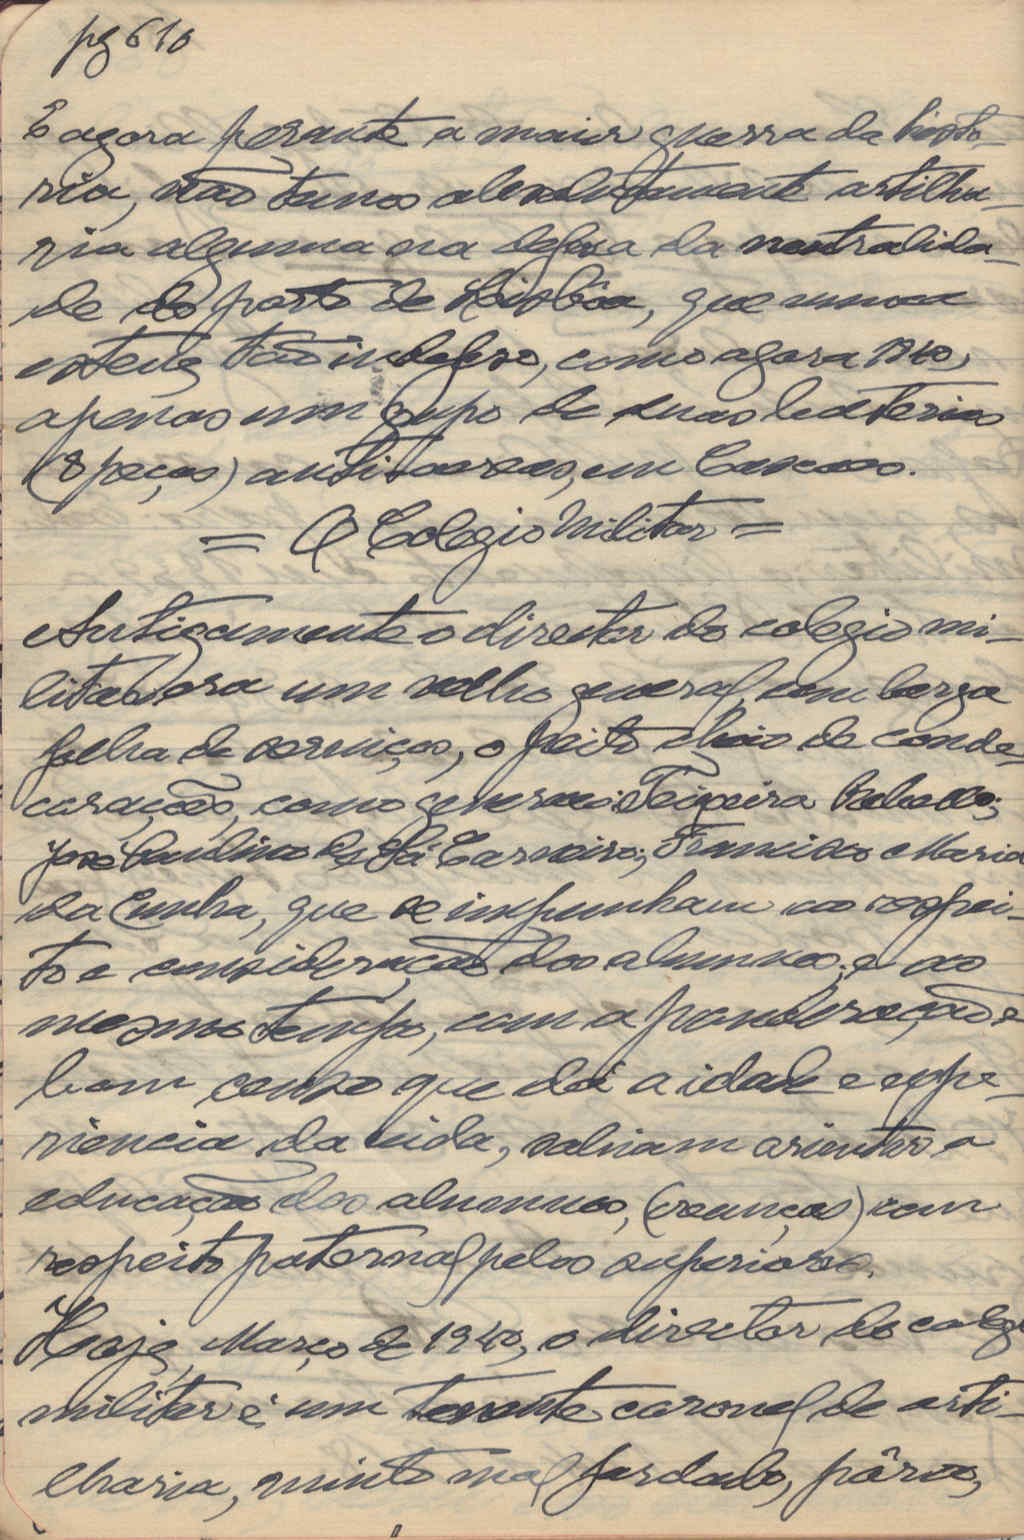 pg 610
E agora perante a maior guerra da histo-
ria, não temos absolutamente artilha-
ria alguma na defesa da neutralida-
de do porto de Lisbôa, que nunca
esteve tão indefeso, como agora 1940,
apenas um grupo de duas batterias
(8 peças) anti-aereas, em Cascaes.
= O Colegio Militar =
Antigamente o director do colegio mi-
litar era um velho general, com larga
folha de serviços, o peito cheio de conde-
corações, como generaes Teixeira Rebello;
José Paulino de Sá Carneiro; Francisco Maria
da Cunha, que se impunham ao respei-
to e consideração dos alumnos; e ao
mesmo tempo, com a ponderação e
bom censo que dá a idade e expe-
riencia da vida, sabiam orientar a
educação dos alumnos, (creanças) com
respeito paternal pelos superiores.
Hoje, Março de 1940, o director do colegio
militar é um tenente coronel de arti-
lharia, muito mal fardado, pôrco,